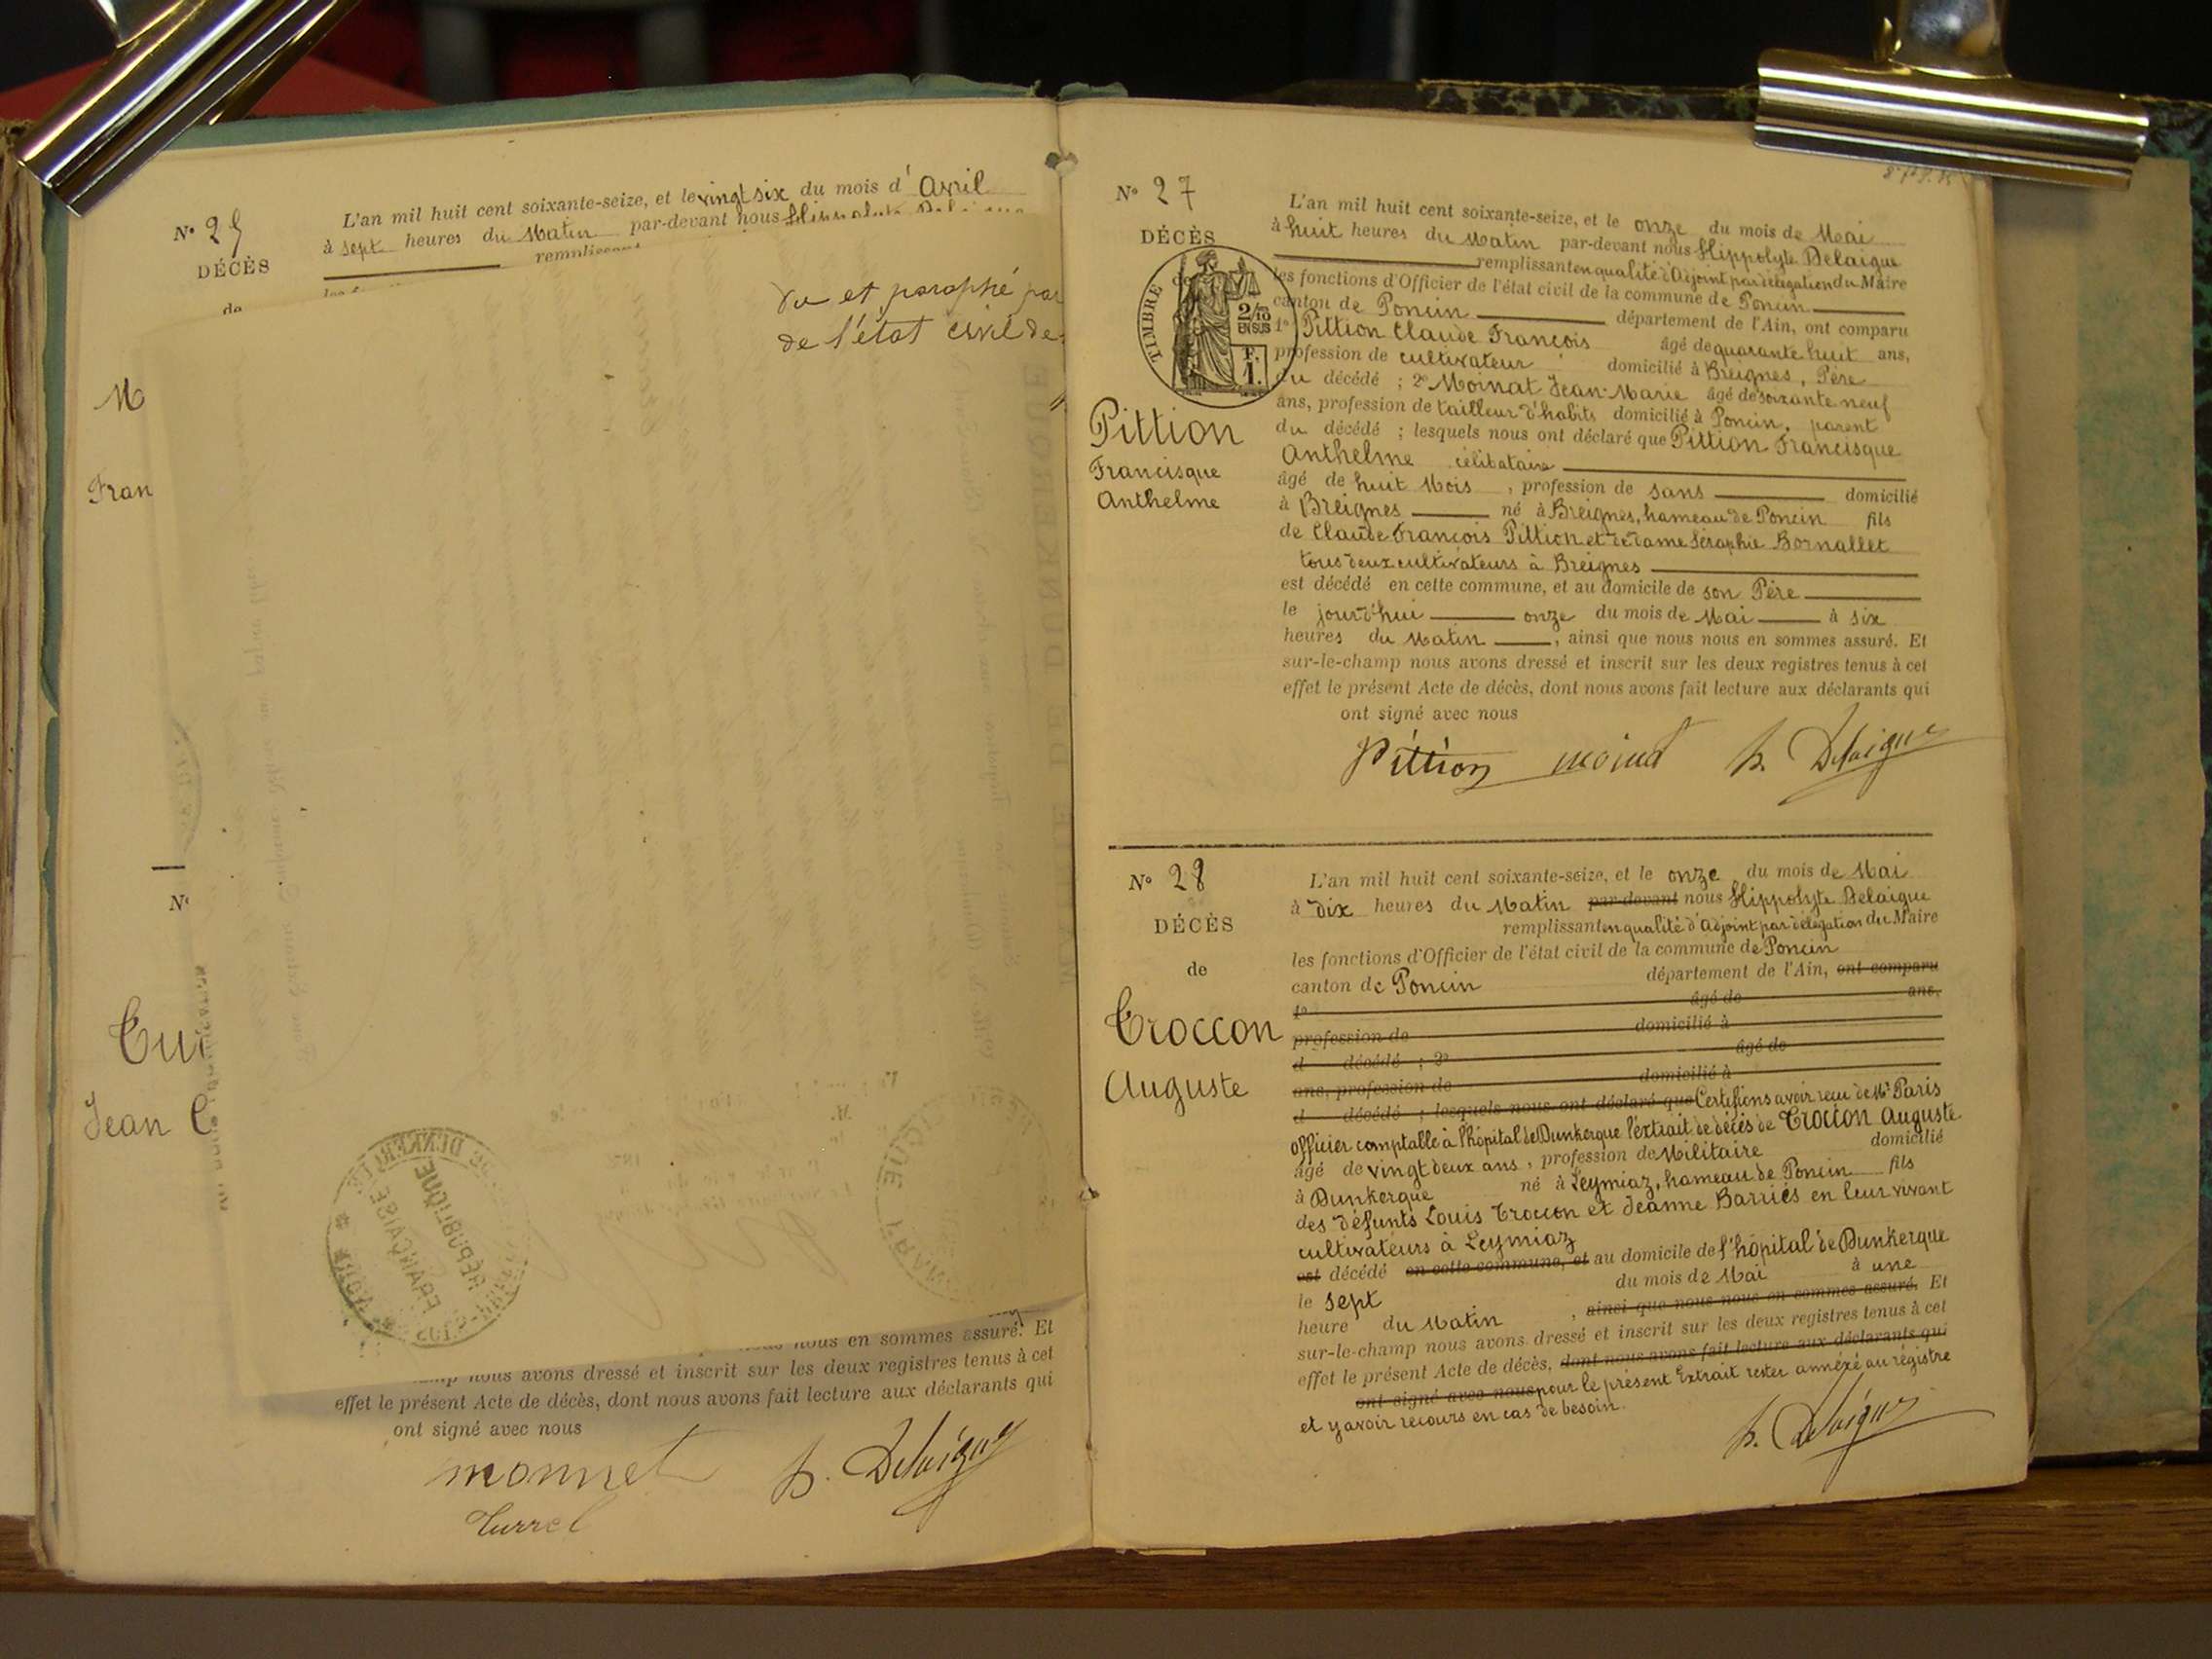 N° 25
DÉCÈS
L'an mil huit cent soixante-seize, et le vingt six du mois d' Avril
à sept heures du Matin par-devant nous
Vu et paraphé par
de l'état civil de
M
Fran
Jean C
nous en sommes assuré. Et
nous avons dressé et inscrit sur les deux registres tenus à cet
effet le présent Acte de décès, dont nous avons fait lecture aux déclarants qui
ont signé avec nous
monnet h. Delaigue
Turrel
N° 27
DÉCÈS
TIMBRE
2/10
EN SUS
F.
1.
Pittion
Francisque
Anthelme
L'an mil huit cent soixante-seize, et le onze du mois de Mai
à huit heures du Matin par-devant nous Hippolyte Delaigue
remplissant en qualité d'Adjoint par délégation du Maire
les fonctions d'Officier de l'état civil de la commune de Poncin
canton de Poncin département de l'Ain, ont comparu
1° Pittion Claude François âgé de quarante huit ans,
profession de cultivateur domicilié à Breignes, Père
du décédé ; 2° Moinat Jean-Marie âgé de soixante neuf
ans, profession de tailleur d'habits domicilié à Poncin, parent
du décédé ; lesquels nous ont déclaré que Pittion Francisque
Anthelme célibataire
âgé de huit Mois, profession de sans domicilié
à Breignes né à Breignes, hameau de Poncin fils
de Claude François Pittion et de dame Séraphie Bornallet
tous deux cultivateurs à Breignes
est décédé en cette commune, et au domicile de son Père
le jourd'hui onze du mois de Mai à six
heures du Matin, ainsi que nous nous en sommes assuré. Et
sur-le-champ nous avons dressé et inscrit sur les deux registres tenus à cet
effet le présent Acte de décès, dont nous avons fait lecture aux déclarants qui
ont signé avec nous
Pittion moinat h. Delaigue
N° 28
DÉCÈS
de
Croccon
Auguste
L'an mil huit cent soixante-seize, et le onze du mois de Mai
à dix heures du Matin par-devant nous Hippolyte Delaigue
remplissant en qualité d'Adjoint par délégation du Maire
les fonctions d'Officier de l'état civil de la commune de Poncin
canton de Poncin département de l'Ain, ont comparu
1° âgé de ans,
profession de domicilié à
d décédé ; 2° âgé de
ans, profession de domicilié à
d décédé ; lesquels nous ont déclaré que Certifions avoir reçu de Mr Paris
officier comptable à l'hôpital de Dunkerque l'extrait de décès de Croccon Auguste
âgé de vingt deux ans, profession de Militaire domicilié
à Dunkerque né à Leymiaz, hameau de Poncin fils
des défunts Louis Croccon et Jeanne Barriés en leur vivant
cultivateurs à Leymiaz
est décédé en cette commune, et au domicile de l'hôpital de Dunkerque
le sept du mois de Mai à une
heure du Matin, ainsi que nous nous en sommes assuré. Et
sur-le-champ nous avons dressé et inscrit sur les deux registres tenus à cet
effet le présent Acte de décès, dont nous avons fait lecture aux déclarants qui
ont signé avec nous pour le présent Extrait rester annéxé au régistre
et y avoir recours en cas de besoin.
h. Delaigue